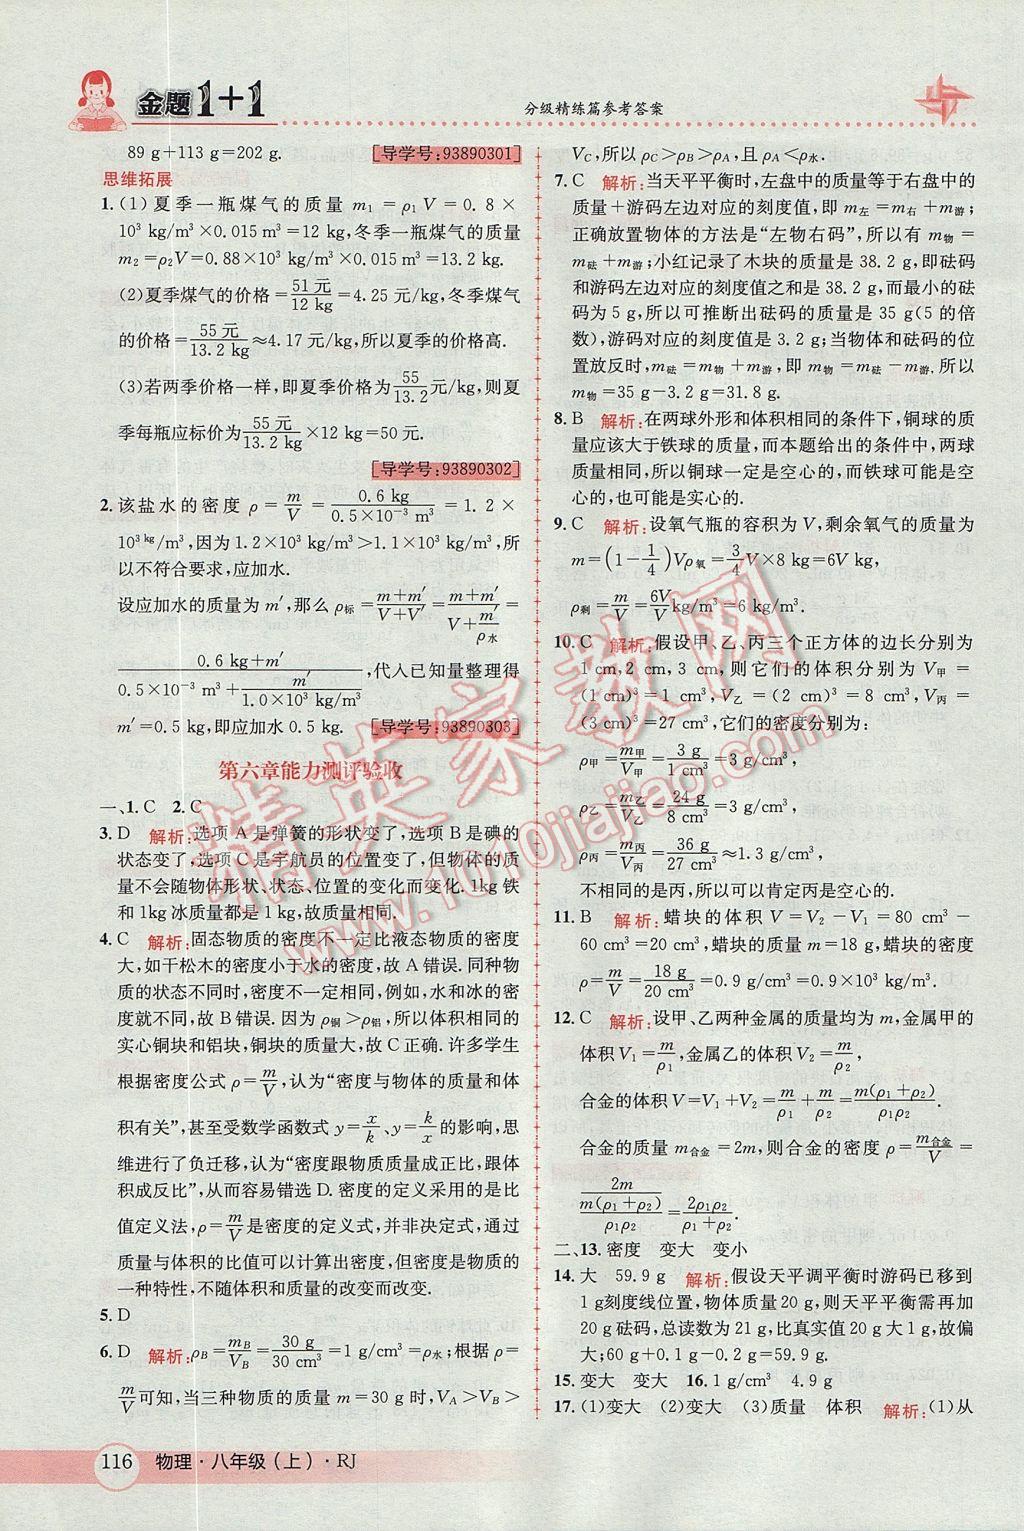 金题1+1
分级精练篇参考答案
89 g+113 g=202 g. [导学号:93890301]
思维拓展
1. (1)夏季一瓶煤气的质量 m₁=ρ₁V=0.8×
10³ kg/m³×0.015 m³=12 kg,冬季一瓶煤气的质量
m₂=ρ₂V=0.88×10³ kg/m³×0.015 m³=13.2 kg.
(2)夏季煤气的价格=51元/12 kg=4.25 元/kg,冬季煤气
的价格=55元/13.2 kg≈4.17 元/kg,所以夏季的价格高.
(3)若两季价格一样,即夏季价格为55/13.2元/kg,则夏
季每瓶应标价为55元/13.2 kg×12 kg=50元.
[导学号:93890302]
2. 该盐水的密度 ρ=m/V=0.6 kg/0.5×10⁻³ m³=1.2×
10³ kg/m³,因为1.2×10³ kg/m³>1.1×10³ kg/m³,所
以不符合要求,应加水.
设应加水的质量为 m′,那么 ρ标=(m+m′)/(V+V′)=(m+m′)/(V+m′/ρ水)=
(0.6 kg+m′)/(0.5×10⁻³ m³+m′/(1.0×10³ kg/m³)),代入已知量整理得
m′=0.5 kg,即应加水 0.5 kg. [导学号:93890303]
第六章能力测评验收
一、1. C 2. C
3. D 解析:选项 A 是弹簧的形状变了,选项 B 是碘的
状态变了,选项 C 是宇航员的位置变了,但物体的质
量不会随物体形状、状态、位置的变化而变化. 1kg 铁
和 1kg 冰质量都是 1 kg,故质量相同.
4. C 解析:固态物质的密度不一定比液态物质的密度
大,如干松木的密度小于水的密度,故 A 错误. 同种物
质的状态不同时,密度不一定相同,例如,水和冰的密
度就不同,故 B 错误. 因为 ρ铜>ρ铝,所以体积相同的
实心铜块和铝块,铜块的质量大,故 C 正确. 许多学生
根据密度公式 ρ=m/V,认为“密度与物体的质量和体
积有关”,甚至受数学函数式 y=x/k、y=k/x 的影响,思
维进行了负迁移,认为“密度跟物质质量成正比,跟体
积成反比”,从而容易错选 D. 密度的定义采用的是比
值定义法,ρ=m/V是密度的定义式,并非决定式,通过
质量与体积的比值可以计算出密度,但密度是物质的
一种特性,不随体积和质量的改变而改变.
5. D
6. D 解析:ρB=mB/VB=30 g/30 cm³=1 g/cm³=ρ水;根据 ρ=
m/V可知,当三种物质的质量 m=30 g 时,VA>VB>
VC,所以 ρC>ρB>ρA,且 ρA<ρ水.
7. C 解析:当天平平衡时,左盘中的质量等于右盘中的
质量+游码左边对应的刻度值,即 m左=m右+m游;
正确放置物体的方法是“左物右码”,所以有 m物=
m砝+m游;小红记录了木块的质量是 38.2 g,即砝码
和游码左边对应的刻度值之和是 38.2 g,而最小的砝
码为 5 g,所以可推断出砝码的质量是 35 g(5 的倍
数),游码对应的刻度值是 3.2 g;当物体和砝码的位
置放反时,m砝=m物+m游,即 m物=m砝-m游.所以
m物=35 g-3.2 g=31.8 g.
8. B 解析:在两球外形和体积相同的条件下,铜球的质
量应该大于铁球的质量,而本题给出的条件中,两球
质量相同,所以铜球一定是空心的,而铁球可能是空
心的,也可能是实心的.
9. C 解析:设氧气瓶的容积为 V,剩余氧气的质量为
m=(1-1/4)Vρ氧=3/4V×8 kg=6V kg,
ρ剩=m/V=6V/V kg/m³=6 kg/m³.
10. C 解析:假设甲、乙、丙三个正方体的边长分别为
1 cm,2 cm,3 cm,则它们的体积分别为 V甲=
(1 cm)³=1 cm³,V乙=(2 cm)³=8 cm³,V丙=
(3 cm)³=27 cm³,它们的密度分别为:
ρ甲=m甲/V甲=3 g/1 cm³=3 g/cm³,
ρ乙=m乙/V乙=24 g/8 cm³=3 g/cm³,
ρ丙=m丙/V丙=36 g/27 cm³≈1.3 g/cm³,
不相同的是丙,所以可以肯定丙是空心的.
11. B 解析:蜡块的体积 V=V₂-V₁=80 cm³-
60 cm³=20 cm³,蜡块的质量 m=18 g,蜡块的密度
ρ=m/V=18 g/20 cm³=0.9 g/cm³.
12. C 解析:设甲、乙两种金属的质量均为 m,金属甲的
体积 V₁=m/ρ₁,金属乙的体积 V₂=m/ρ₂,
合金的体积 V=V₁+V₂=m/ρ₁+m/ρ₂=m(ρ₁+ρ₂)/ρ₁ρ₂.
合金的质量 m合金=2m,则合金的密度 ρ=m合金/V=
2m/(m(ρ₁+ρ₂)/ρ₁ρ₂)=2ρ₁ρ₂/(ρ₁+ρ₂).
二、13. 密度 变大 变小
14. 大 59.9 g 解析:假设天平调平衡时游码已移到
1 g刻度线位置,物体质量 20 g,则天平平衡需再加
20 g 砝码,总读数为 21 g,比真实值 20 g 大 1 g,故偏
大;60 g+0.1 g-0.2 g=59.9 g.
15. 变大 变大 16. 1 g/cm³ 4.9 g
17. (1)变大 (2)变大 (3)质量 体积 解析:(1)从
116 物理·八年级(上)·RJ
精英家教网
www.1010jiajiao.com